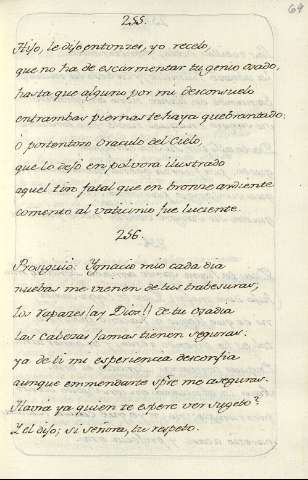 69
255.
Hijo, le dijo entonzes, yo recelo,
que no ha de escarmentar tu genio osado,
hasta que alguno por mi desconsuelo
entrambas piernas te haya quebrantado;
ó portentoso Oraculo del Cielo,
que lo dejó en polvora ilustrado
aquel tiro fatal que en bronze ardiente
comento al vaticinio fue luciente.
256.
Prosiguió: Ygnacio mio cada dia
nuebas me vienen de tus trabesuras,
los rapazes (ay Dios!) de tu osadia
las cabezas jamas tienen seguras.
ya de ti mi esperiencia desconfia
aunque emmendarte spre me aseguras.
Havra ya quien te espere ver sugeto?
Y el dijo; si señora, tu respeto.